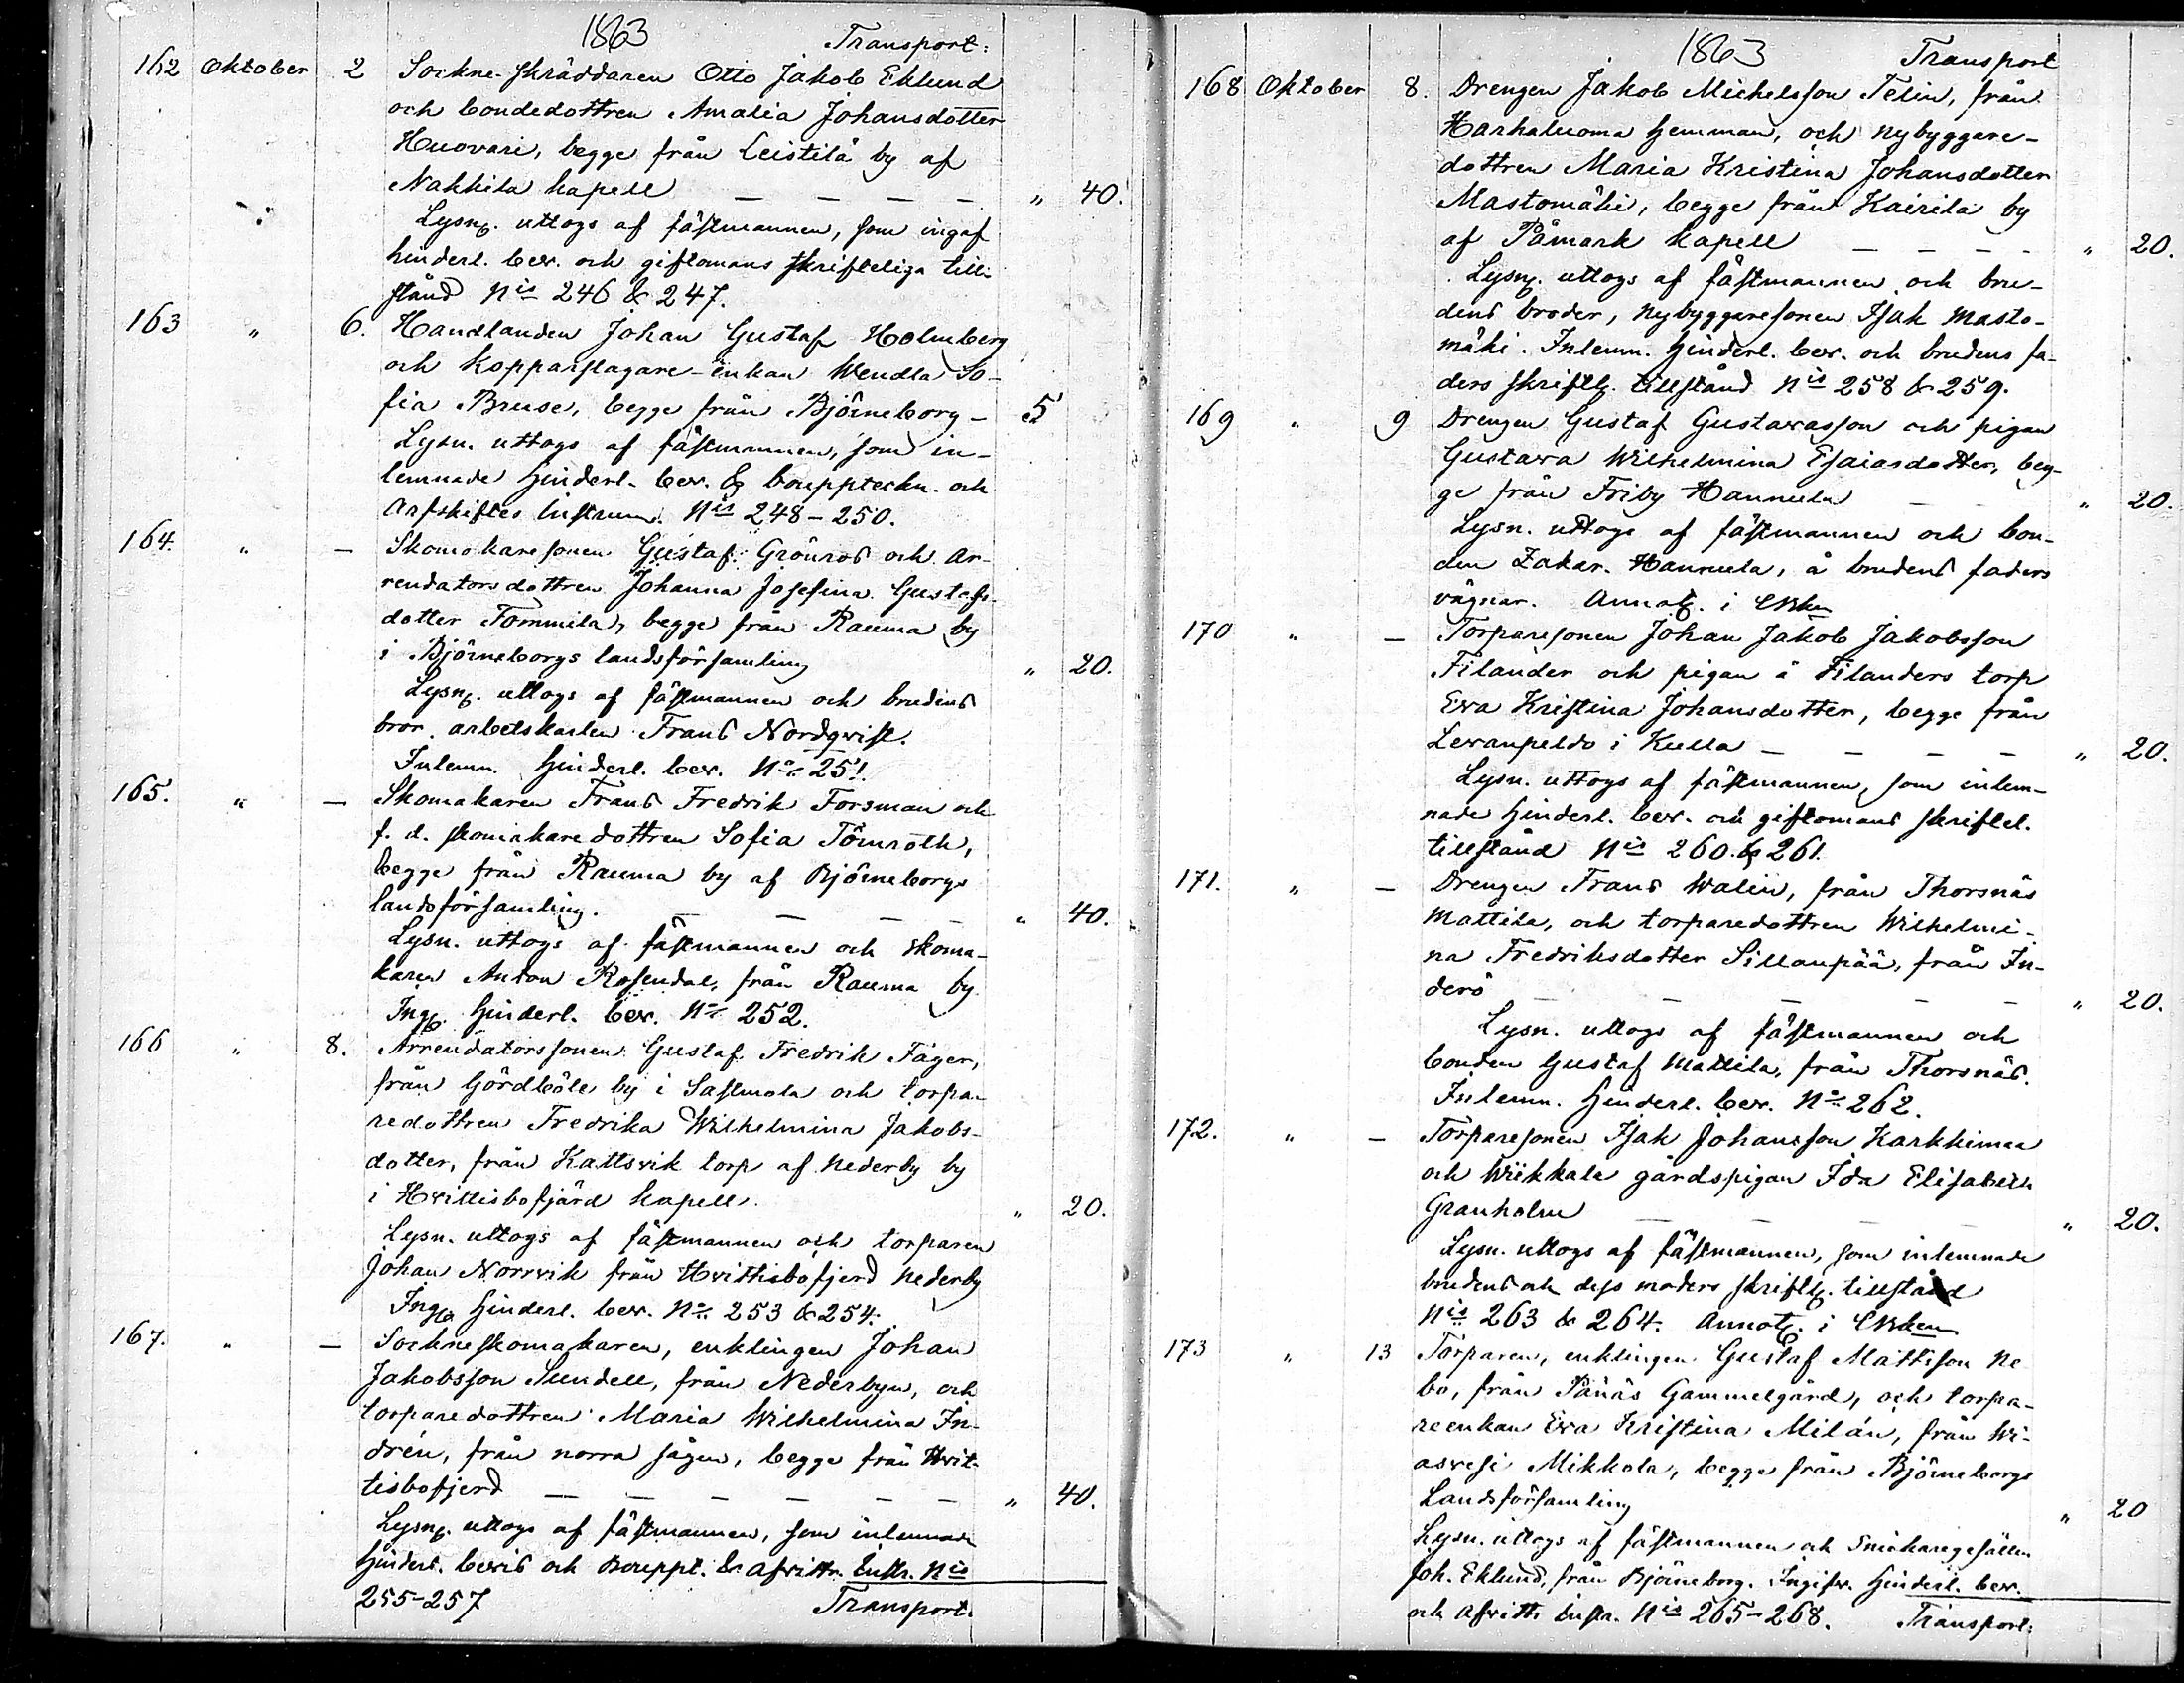 1863 Transport:
162 Oktober 2 Sockne-skräddaren Otto Jakob Eklund
och bondedottren Amalia Johansdotter
Huovari, begge från Leistilä by af
Nakkila kapell — — — — " 40.
Lysng. uttogs af fästmannen, som ingaf
hinderl. bev. och giftomans skrifteliga till-
stånd Nis 246 & 247.
163 " 6. Handlanden Johan Gustaf Holmberg
och Kopparslagare-enkan Wendla So-
fia Bruse, begge från Björneborg — 5
Lysn. uttogs af fästmannen, som in-
lemnade hinderl. bev. & bouppteckn. och
Arfskiftes instrum. Nis 248-250.
164. " — Skomakaresonen Gustaf Grönros och Ar-
rendatorsdottren Johanna Josefina Gustafs-
dotter Tommila, begge från Rauma by
i Björneborgs landsförsamling " 20.
Lysng. uttogs af fästmannen och brudens
bror, arbetskarlen Frans Nordqvist.
Inlemn. hinderl. bev. No 251.
165. " — Skomakaren Frans Fredrik Forsman och
f. d. skomakaredottren Sofia Törnroth,
begge från Rauma by af Björneborgs
landsförsamling. — — — — " 40.
Lysn. uttogs af fästmannen och skoma-
karen Anton Rosendal, från Rauma by
Ingg. hinderl. bev. No 252.
166 " 8. Arrendatorssonen Gustaf Fredrik Fäger,
från Gördböle by i Sastmola och torpa-
redottren Fredrika Wilhelmina Jakobs-
dotter, från Kattsvik torp af Nederby by
i Hvittisbofjärd kapell. " 20.
Lysn. uttogs af fästmannen och torparen
Johan Norrvik från Hvittisbofjerd Nederby
Ingg. hinderl. bev. No 253 & 254.
167. " — Sockneskomakaren, enklingen Johan
Jakobsson Sundell, från Nederbyn, och
torparedottren Maria Wilhelmina In-
drén, från norra sågen, begge från Hvit-
tisbofjerd — — — — — — " 40.
Lysng. uttogs af fästmannen, som inlemnade
hinderl. bevis och Bouppt. & afvittr. Instr. Nis
255-257 Transport.
1863 Transport
168 Oktober 8. Drengen Jakob Michelsson Telin, från
Harhaluoma hemman, och nybyggare-
dottren Maria Kristina Johansdotter
Mastomäki, begge från Kairila by
af Påmark kapell — — — — " 20.
Lysng. uttogs af fästmannen och bru-
dens broder, nybyggaresonen Isak Masto-
mäki. Inlemn. hinderl. bev. och brudens fa-
ders skriftlg. tillstånd Nis 258 & 259.
169 " 9 Drengen Gustaf Gustavasson och pigan
Gustava Wilhelmina Esaiasdotter, beg-
ge från Friby Hannula — — " 20.
Lysn. uttogs af fästmannen och bon-
den Zakar. Hannula, å brudens faders
vägnar. Annotg. i CBken
170 " — Torparesonen Johan Jakob Jakobsson
Filander och pigan å Filanders torp
Eva Kristina Johansdotter, begge från
Levanpeldo i Kulla — — — — " 20.
Lysn. uttogs af fästmannen, som inlem-
nade hinderl. bev. och giftomans skriftel.
tillstånd Nis 260 & 261.
171. " — Drengen Frans Walin, från Thorsnäs
Mattila, och torparedottren Wilhelmi-
na Fredriksdotter Sillanpää, från In-
derö — — — — — " 20.
Lysn. uttogs af fästmannen och
bonden Gustaf Mattila, från Thorsnäs.
Inlemn. hinderl. bev. No 262.
172. " — Torparesonen Isak Johansson Karkkimaa
och Wiikkala gårdspigan Ida Elisabeth
Granholm — — — — " 20.
Lysn. uttogs af fästmannen, som inlemnade
brudens och dess moders skriftlg. tillstånd
Nis 263 & 264. Annotg. i CBken
173 " 13 Torparen, enklingen Gustaf Mattsson Ne
bo, från Pänäs Gammelgård, och torpa-
reenkan Eva Kristina Milán, från Wi-
asvesi Mikkola, begge från Björneborgs
Landsförsamling " 20
Lysn. uttogs af fästmannen och Snickaregesällen
Joh. Eklund, från Björneborg. Ingifv. hinderl. bev.
och afvittr. instr. Nis 265-268. Transport: